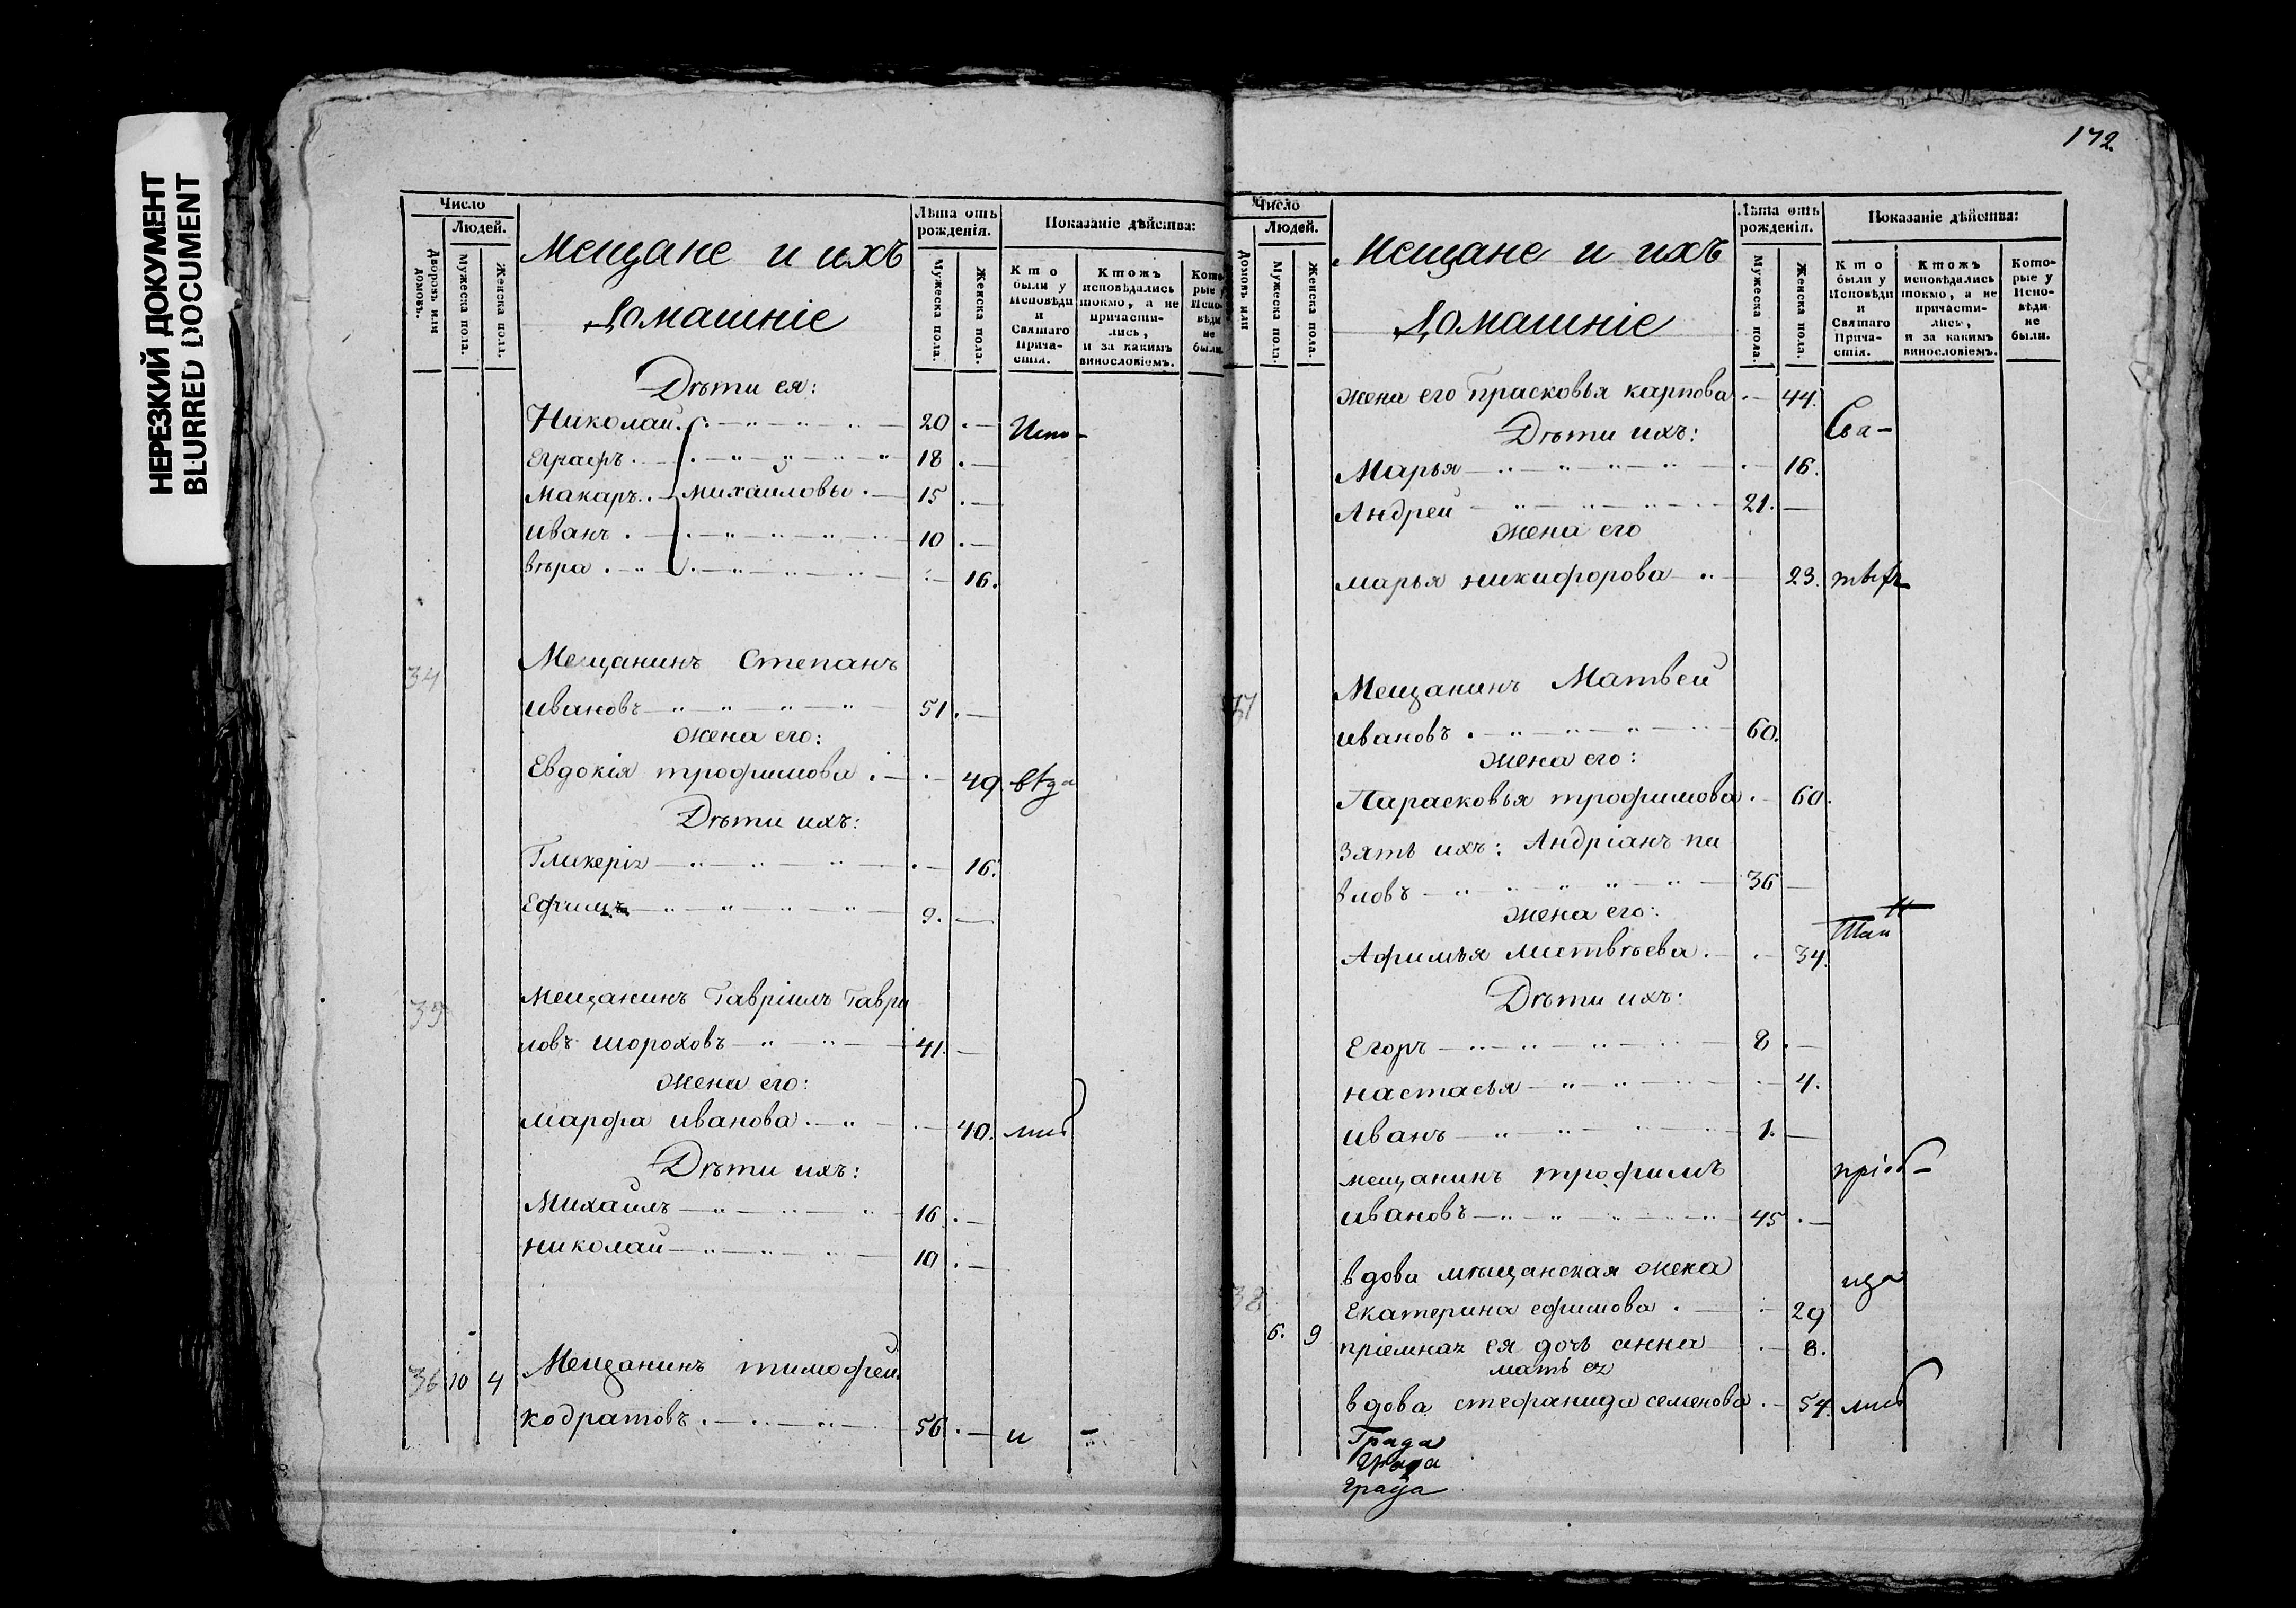 НЕРЕЗКИЙ ДОКУМЕНТ
BLURRED DOCUMENT
Число
Людей.
Дворовъ или домовъ.
Мужеска пола.
Женска пола.
Мещане и ихъ
Домашніе
Лѣта отъ рожденія.
Мужеска пола.
Женска пола.
Показаніе дѣйства:
Кто были у Исповѣди и Святаго Прича-стія.
Ктожъ исповѣдались токмо, а не причасти-лись, и за какимъ винословіемъ.
Кото-рые у Испо-вѣди не были.
Дѣти ея:
Николай 20 Испо-
Еграфъ 18
Макаръ Михаиловы 15
Иванъ 10
Вѣра 16.
34 Мещанинъ Степанъ
Ивановъ 51
жена его:
Евдокія трофимова 49. вѣда
Дѣти ихъ:
Гликерія 16.
Ефимъ 9.
35 Мещанинъ Гавріилъ Гаври
ловъ шороховъ 41.
жена его:
марфа иванова 40.
Дѣти ихъ:
Михаилъ 16
николай 10
36 10 4 Мещанинъ тимофей
кодратовъ 56 и
172.
Число
Людей.
домовъ или
Мужеска пола.
Женска пола.
Мещане и ихъ
Домашніе
Лѣта отъ рожденія.
Мужеска пола.
Женска пола.
Показаніе дѣйства:
Кто были у Исповѣди и Святаго Прича-стія.
Ктожъ исповѣдались токмо, а не причасти-лись, и за какимъ винословіемъ.
Кото-рые у Испо-вѣди не были.
жена его Прасковья карпова 44.
Дѣти ихъ: Свя-
Марья 16.
Андрей 21.
жена его
марья никифорова 23.
37 Мещанинъ Матвей
ивановъ 60.
жена его:
Парасковья трофимова 60.
Зять ихъ: Андріанъ па
вловъ 36
жена его:
Афимья матвѣева 34.
Дѣти ихъ:
Егоръ 8
настасья 4.
иванъ 1.
мещанинъ трофимъ пріоб-
ивановъ 45
вдова мѣщанская жена
38 Екатерина ефимова 29
6. 9 пріемная ея дочь анна 8.
мать ея
вдова стефанида семенова 54.
Града
Града
Града